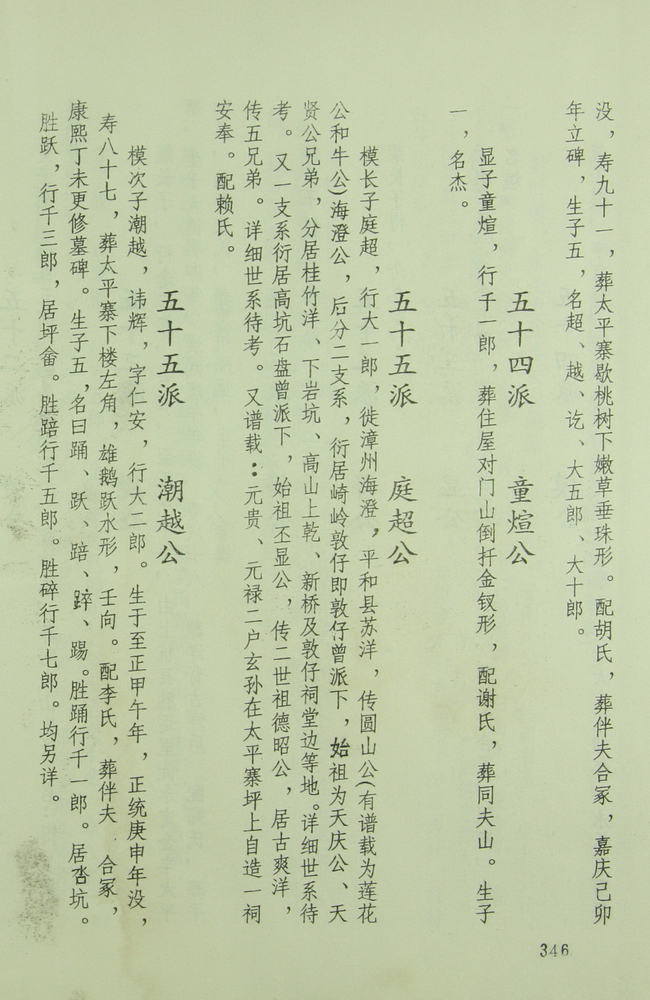 没，寿九十一，葬太平寨歇桃树下嫩草垂珠形。配胡氏，葬伴夫合冢，嘉庆己卯
年立碑，生子五，名超、越、讫、大五郎、大十郎。
五十四派　童煊公
显子童煊，行千一郎，葬住屋对门山倒扦金钗形，配谢氏，葬同夫山。生子
一，名杰。
五十五派　庭超公
模长子庭超，行大一郎，徙漳州海澄，平和县苏洋，传圆山公(有谱载为莲花
公和牛公)海澄公，后分二支系，衍居崎岭敦仔即敦仔曾派下，始祖为天庆公、天
贤公兄弟，分居桂竹洋、下岩坑、高山上乾、新桥及敦仔祠堂边等地。详细世系待
考。又一支系衍居高坑石盘曾派下，始祖丕显公，传二世祖德昭公，居古爽洋，
传五兄弟。详细世系待考。又谱载：元贵、元禄二户玄孙在太平寨坪上自造一祠
安奉。配赖氏。
五十五派　潮越公
模次子潮越，讳辉，字仁安，行大二郎。生于至正甲午年，正统庚申年没，
寿八十七，葬太平寨下楼左角，雄鹅跃水形，壬向。配李氏，葬伴夫合冢，
康熙丁未更修墓碑。生子五，名曰踊、跃、踣、踤、踢。胜踊行千一郎。居杏坑。
胜跃，行千三郎，居坪畲。胜踣行千五郎。胜碎行千七郎。均另详。
346